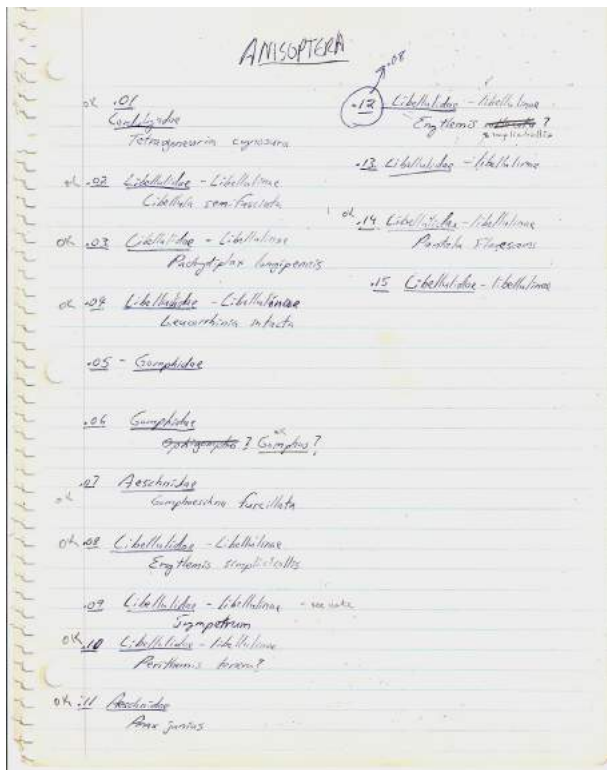 ANISOPTERA
ok .01
Corduliidae
Tetragoneuria cynosura
ok .02 Libellulidae - Libellulinae
Libellula semifasciata
ok .03 Libellulidae - Libellulinae
Pachydiplax longipennis
ok .04 Libellulidae - Libellulinae
Leucorrhinia intacta
.05 - Gomphidae
.06 Gomphidae
ok
? Gomphus?
.07 Aeschnidae
ok Gomphaeschna furcillata
ok .08 Libellulidae - Libellulinae
Erythemis simplicicollis
.09 Libellulidae - libellulinae - see note
Sympetrum
ok .10 Libellulidae - libellulinae
Perithemis tenera?
ok .11 Aeschnidae
Anax junius
.08
.12 Libellulidae - libellulinae
Erythemis ?
simplicicollis
.13 Libellulidae - libellulinae
ok .14 Libellulidae - libellulinae
Pantala flavescens
.15 Libellulidae - libellulinae